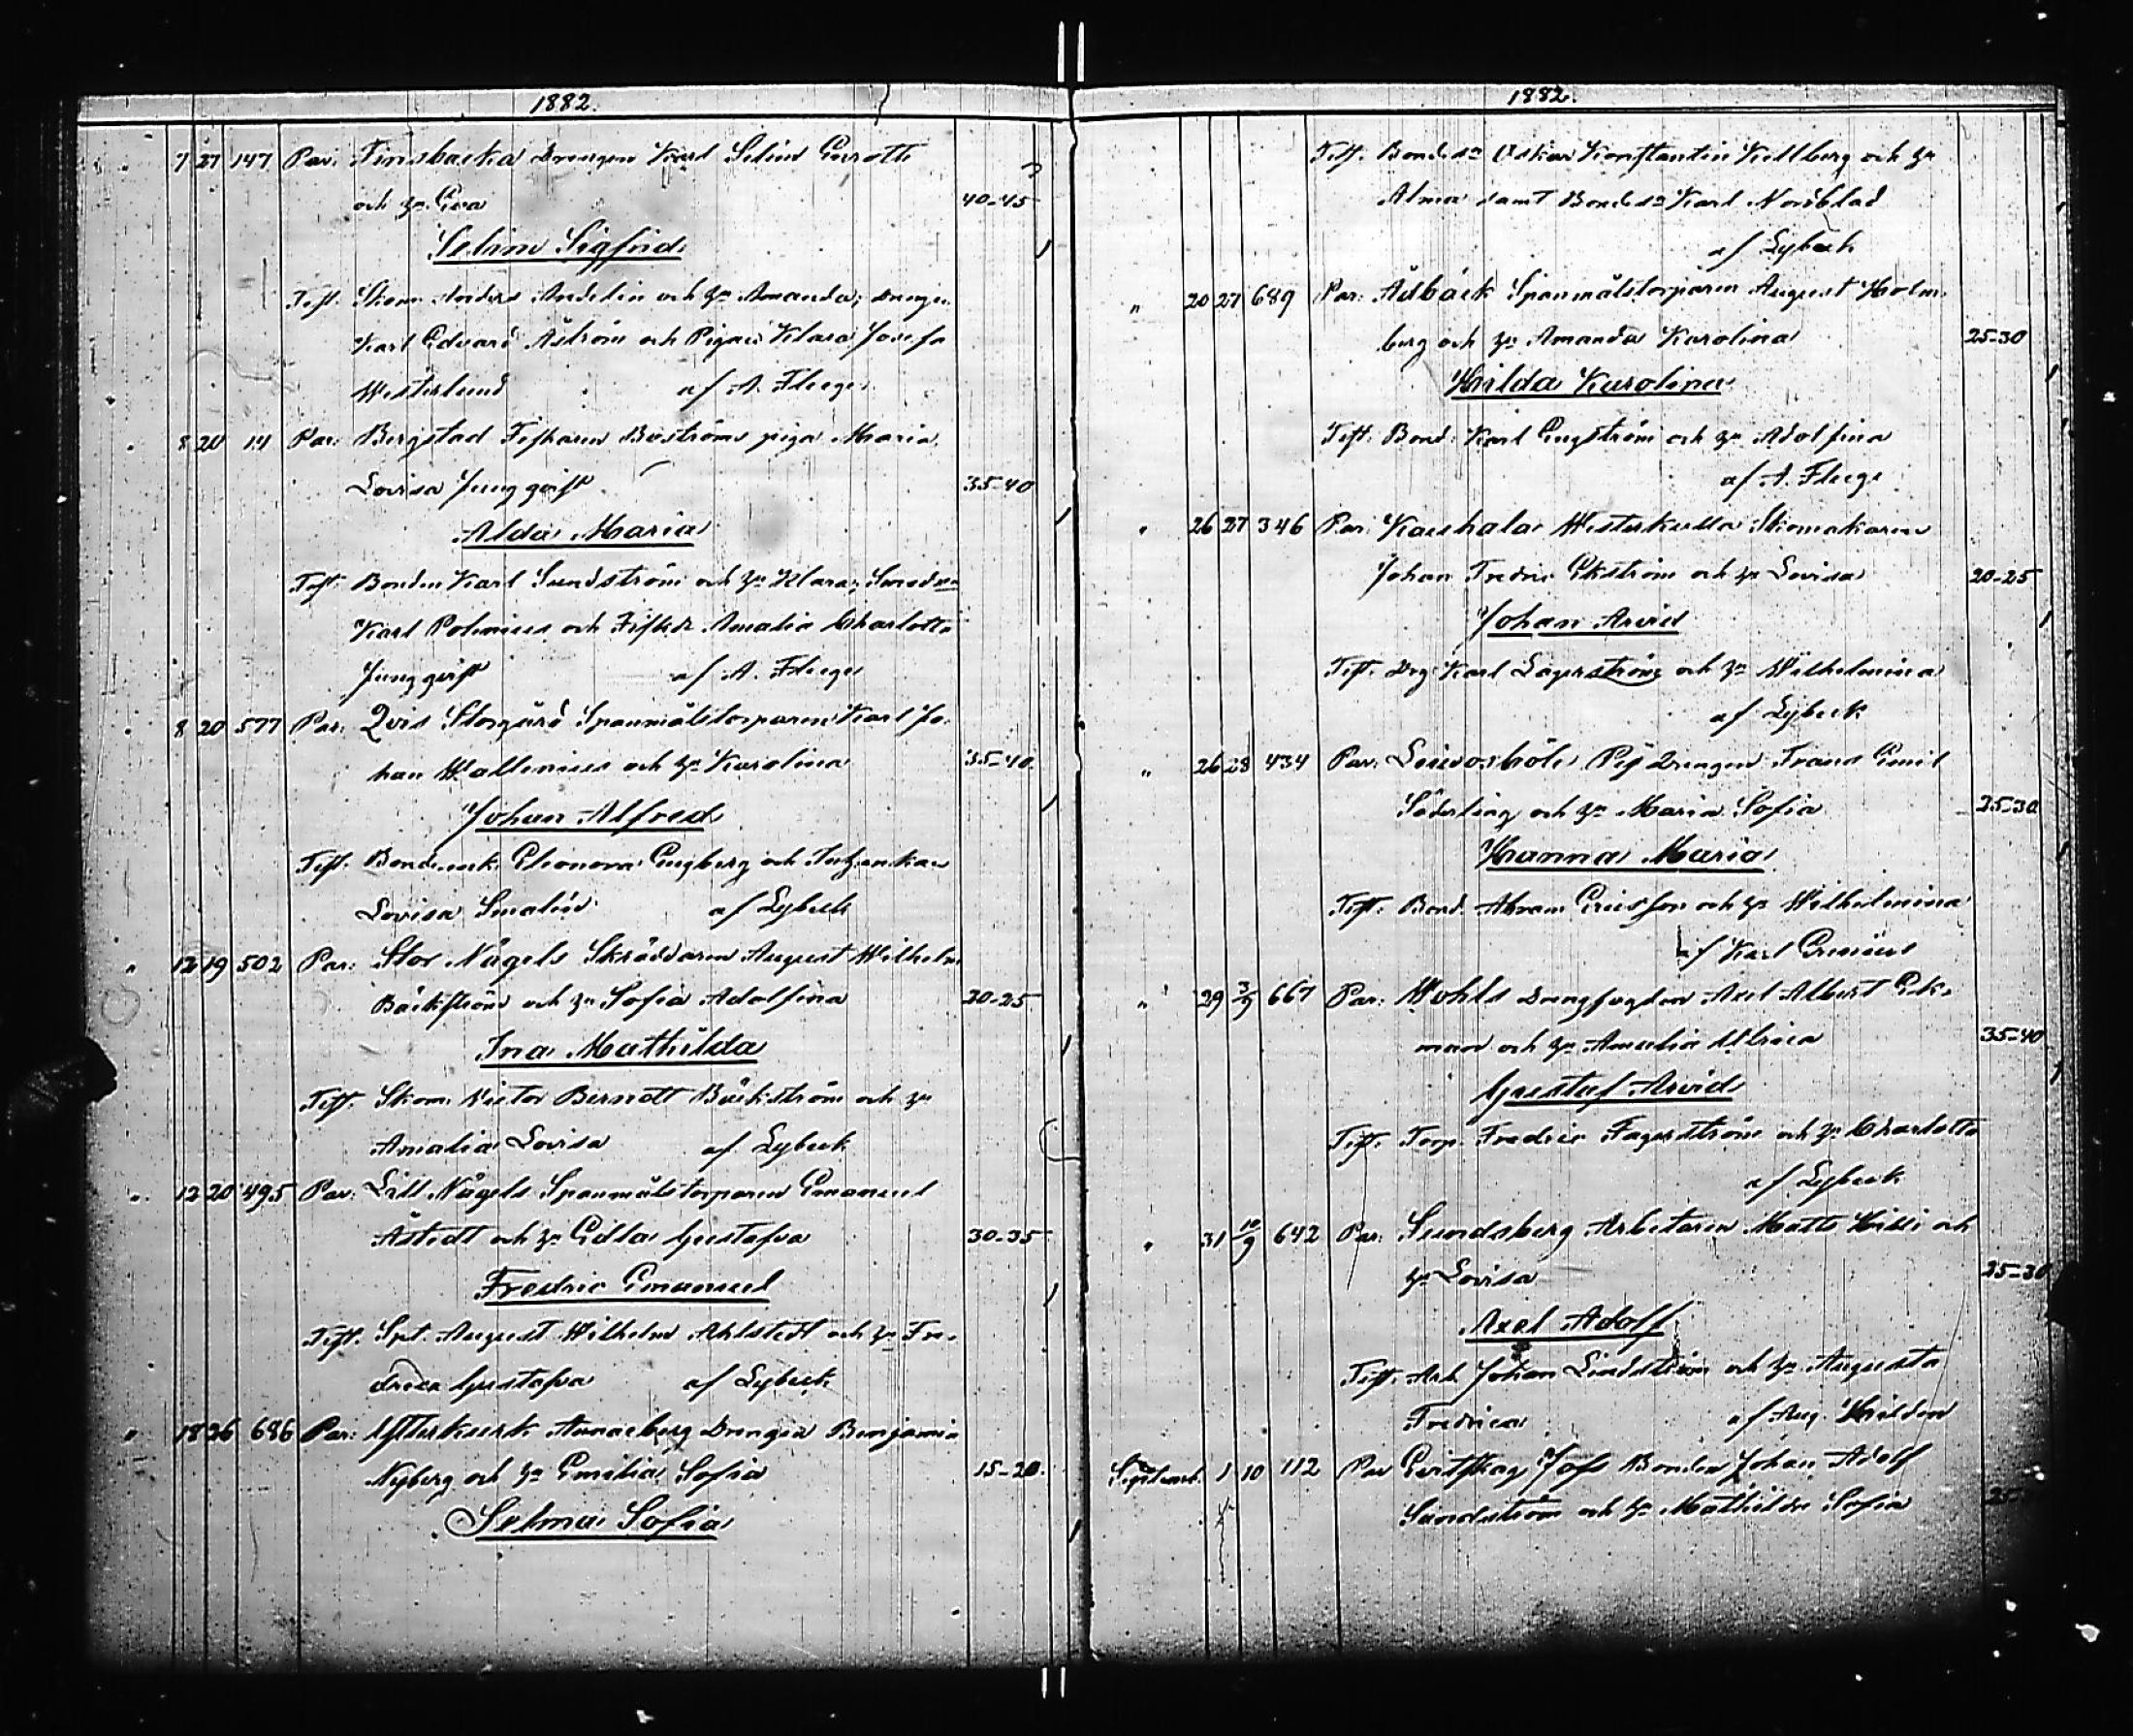 1882.
" 7 27 147 Par: Finsbacka Drengen Karl Selim
och hu Eva 40-45
Selim Sigfrid
Test. Skom. Anders Andelin och hu Amanda; drengen
Karl Edvard Åström och Pigan Klara Josefa
Westerlund af A. Fleege
" 8 20 14 Par: Bergstad Fiskaren Boströms piga Maria
Lovisa Jungqvist 35-40
Alda Maria
Test. Bonden Karl Sundström och hu Klara; Smeden
Karl Polenius och Amalia Charlotta
Jungqvist af A. Fleege
" 8 20 577 Par: Qvis Storgård Spanmålstorparen Karl Jo-
han Wallenius och hu Karolina 35-40
Johan Alfred
Test. Eleonora Engberg och
Lovisa Smalén af Lybeck
" 12 19 502 Par: Stor Nägels Skräddaren August Wilhelm
Bäckström och hu Sofia Adolfina 20-25
Ina Mathilda
Test. Skom. Victor Bernatt Bäckström och hu
Amalia Lovisa af Lybeck
" 12 20 495 Par: Lill Nägels Spanmålstorparen Emanuel
Åstedt och hu Edla Gustafva 30-35
Fredric Emanuel
Test. Spt. August Wilhelm Ahlstedt och hu Fre-
drica Gustafva af Lybeck
" 18 26 686 Par: Annaeberg Drengen Benjamin
Nyberg och hu Emilia Sofia 15-20
Selma Sofia
1882.
Test. Bondeso Oskar Konstantin Kullberg och hu
Alma samt Bondeso Karl Nordblad
af Lybeck
" 20 27 689 Par: Åsbäck Spanmålstorparen August Holm-
berg och hu Amanda Karolina 25-30
Hilda Karolina
Test. Bond. Karl Engström och hu Adolfina
af A. Fleege
" 26 27 346 Par: Kaushala Westerkulla Skomakaren
Johan Fredric Ekström och hu Lovisa 20-25
Johan Arvid
Test. Drg Karl Lagerström och hu Wilhelmina
af Lybeck
" 26 28 434 Par: Pig Drengen Frans Emil
Söderling och hu Maria Sofia 25-30
Hanna Maria
Test. Bond. Abram Ericsson och hu Wilhelmina
af Karl
" 29 3/9 667 Par: Wohls Drengfogden Axel Albert Ek-
man och hu Amalia Ulrica 35-40
Gustaf Arvid
Test. Torp. Fredric Fagerström och hu Charlotta
af Lybeck
" 31 10/9 642 Par: Sundsberg Arbetaren Matts och
hu Lovisa 25-30
Axel Adolf
Test. Arb Johan Lindström och hu Augusta
Fredrica af Aug. Hilden
Septemb. 1 10 112 Par Joss Bonden Johan Adolf
Sandström och hu Mathilda Sofia